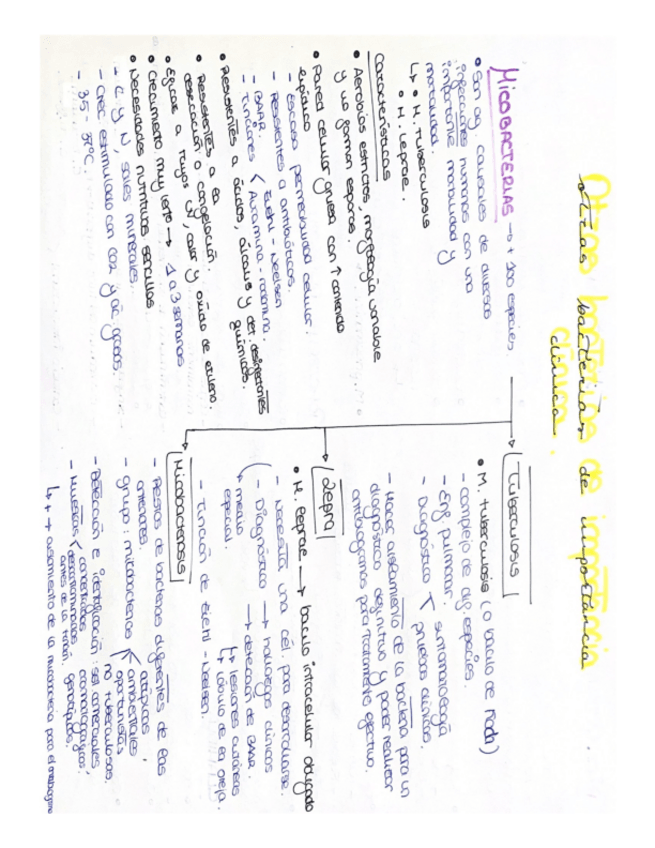 Otras bacterias de importancia
clínica.
MICOBACTERIAS → + 100 especies
• Son ag. causales de diversas
infecciones humanas con una
importante morbilidad y
mortalidad.
↳ • M. tuberculosis
• M. Leprae.
Características
• Aerobios estrictos, morfología variable
y no forman esporas.
• Pared celular gruesa con ↑ contenido
lipídico
- Escasa permeabilidad celular.
- Resistentes a antibióticos.
- BAAR.
- Tinciones < Ziehl-Neelsen
Auramina-rodamina.
• Resistentes a ácidos, álcalis y det desinfectantes
químicos.
• Resistentes a la
desecación o congelación.
• Eficaz a rayos UV, calor y óxido de etileno.
• Crecimiento muy lento → 1 a 3 semanas
• Necesidades nutritivas sencillas
- C y N, sales minerales.
- Crec. estimulado con CO2 y ác. grasos.
- 35 - 37ºC.
Tuberculosis
• M. tuberculosis (o bacilo de Koch)
- complejo de dif. especies.
- Enf. pulmonar.
- Diagnóstico < sintomatología
pruebas clínicas.
- Hacer aislamiento de la bacteria para un
diagnóstico definitivo y poder realizar
antibiogramas para tratamiento efectivo.
Lepra
• M. leprae → bacilo intracelular obligado
- Necesita una cél. para desarrollarse.
- Diagnóstico → hallazgos clínicos
→ detección de BAAR.
↳ lesiones cutáneas
↳ lóbulo de la oreja.
medio
especial.
- Tinción de Ziehl-Neelsen.
Micobacteriosis
- Restos de bacterias diferentes de las
anteriores.
- grupo: micobacterias < atípicas,
ambientales
oportunistas
no tuberculosas.
- Detección e identificación: sist comerciales
cromatográficos,
genotípicos.
- Muestras < concentradas
descontaminadas
antes de la tinción.
↳ + → aislamiento de la micobacteria para el antibiograma